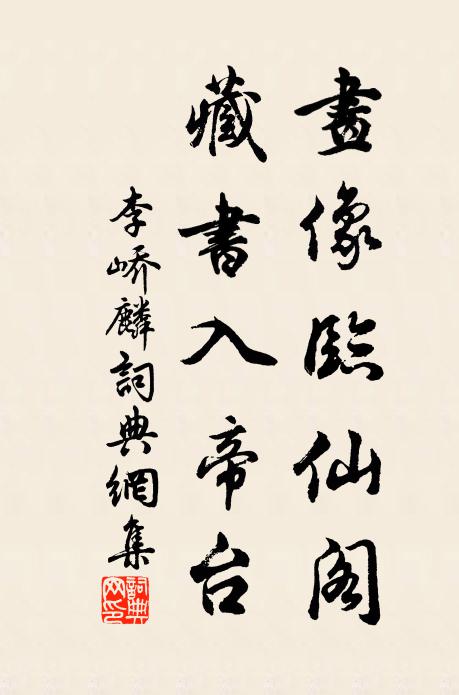 畫像臨仙閣
藏書入帝台
李嶠麟詞典網集
詞典网印